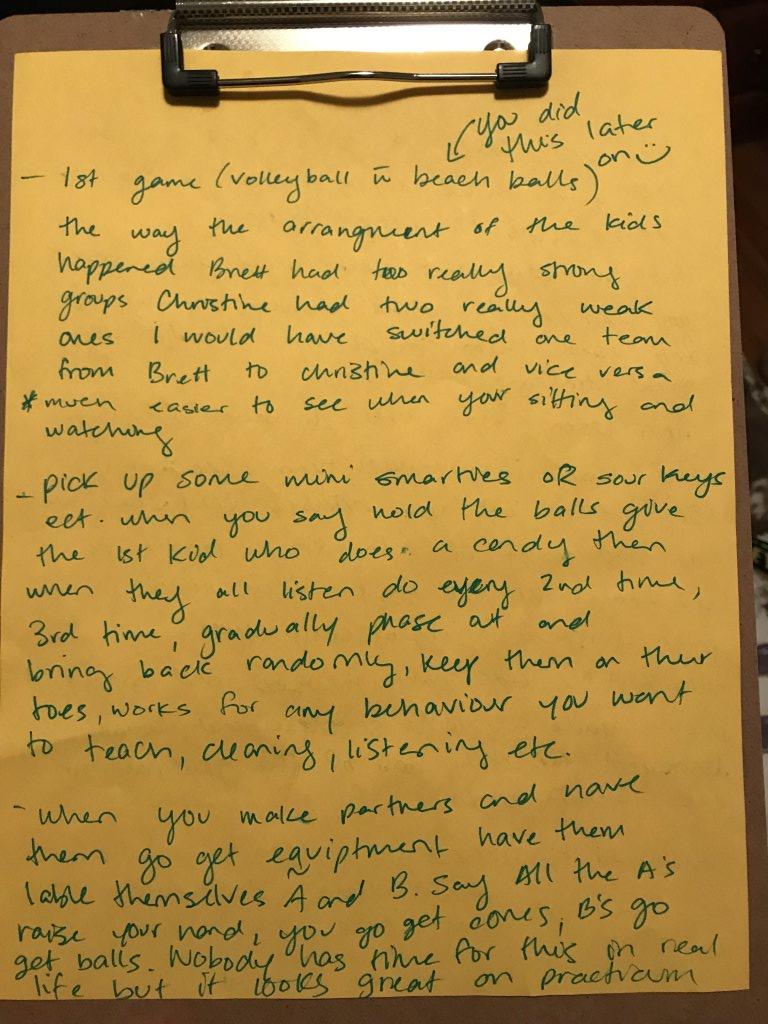 you did
this later
on
- 1st game (volleyball w̄ beach balls)
the way the arrangment of the kids
happened Brett had two really strong
groups Christine had two really weak
ones I would have switched one team
from Brett to christine and vice versa
* much easier to see when your sitting and
watching
- pick up some mini smarties OR sour keys
ect. when you say hold the balls give
the 1st kid who does a candy then
when they all listen do every 2nd time,
3rd time, gradually phase out and
bring back randomly, keep them on their
toes, works for any behaviour you want
to teach, cleaning, listening etc.
- when you make partners and have
them go get equiptment have them
lable themselves A and B. Say All the A's
raise your hand, you go get cones, B's go
get balls. Nobody has time for this in real
life but it looks great on practicum